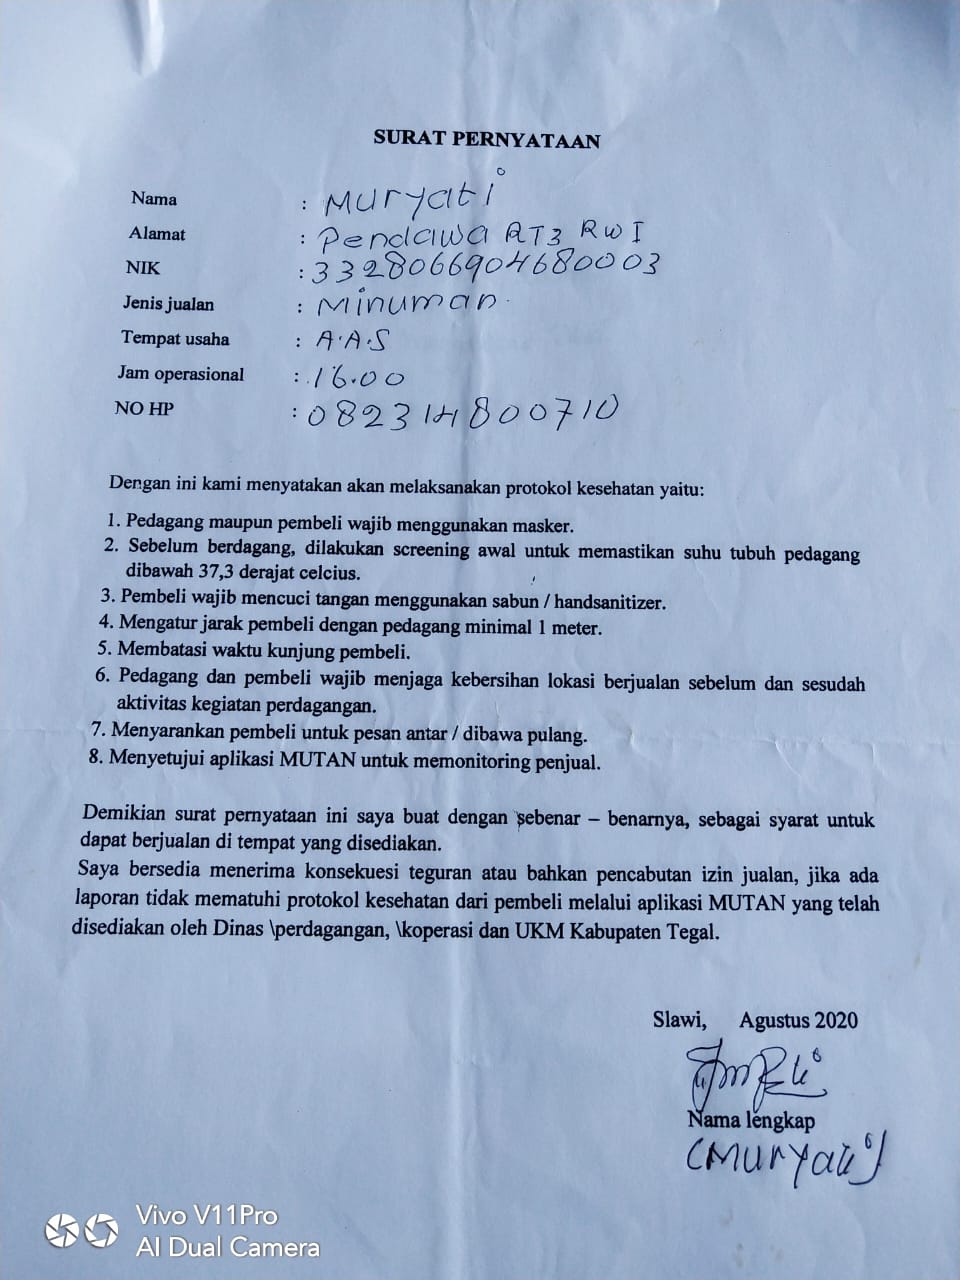 SURAT PERNYATAAN
Nama : Muryati
Alamat : Pendawa RT3 RW I
NIK : 3328066904680003
Jenis jualan : Minuman
Tempat usaha : A.A.S
Jam operasional : 16.00
NO HP : 082314800710
Dengan ini kami menyatakan akan melaksanakan protokol kesehatan yaitu:
1. Pedagang maupun pembeli wajib menggunakan masker.
2. Sebelum berdagang, dilakukan screening awal untuk memastikan suhu tubuh pedagang
dibawah 37,3 derajat celcius.
3. Pembeli wajib mencuci tangan menggunakan sabun / handsanitizer.
4. Mengatur jarak pembeli dengan pedagang minimal 1 meter.
5. Membatasi waktu kunjung pembeli.
6. Pedagang dan pembeli wajib menjaga kebersihan lokasi berjualan sebelum dan sesudah
aktivitas kegiatan perdagangan.
7. Menyarankan pembeli untuk pesan antar / dibawa pulang.
8. Menyetujui aplikasi MUTAN untuk memonitoring penjual.
Demikian surat pernyataan ini saya buat dengan sebenar – benarnya, sebagai syarat untuk
dapat berjualan di tempat yang disediakan.
Saya bersedia menerima konsekuesi teguran atau bahkan pencabutan izin jualan, jika ada
laporan tidak mematuhi protokol kesehatan dari pembeli melalui aplikasi MUTAN yang telah
disediakan oleh Dinas \perdagangan, \koperasi dan UKM Kabupaten Tegal.
Slawi, Agustus 2020
Nama lengkap
(Muryati)
Vivo V11Pro
AI Dual Camera